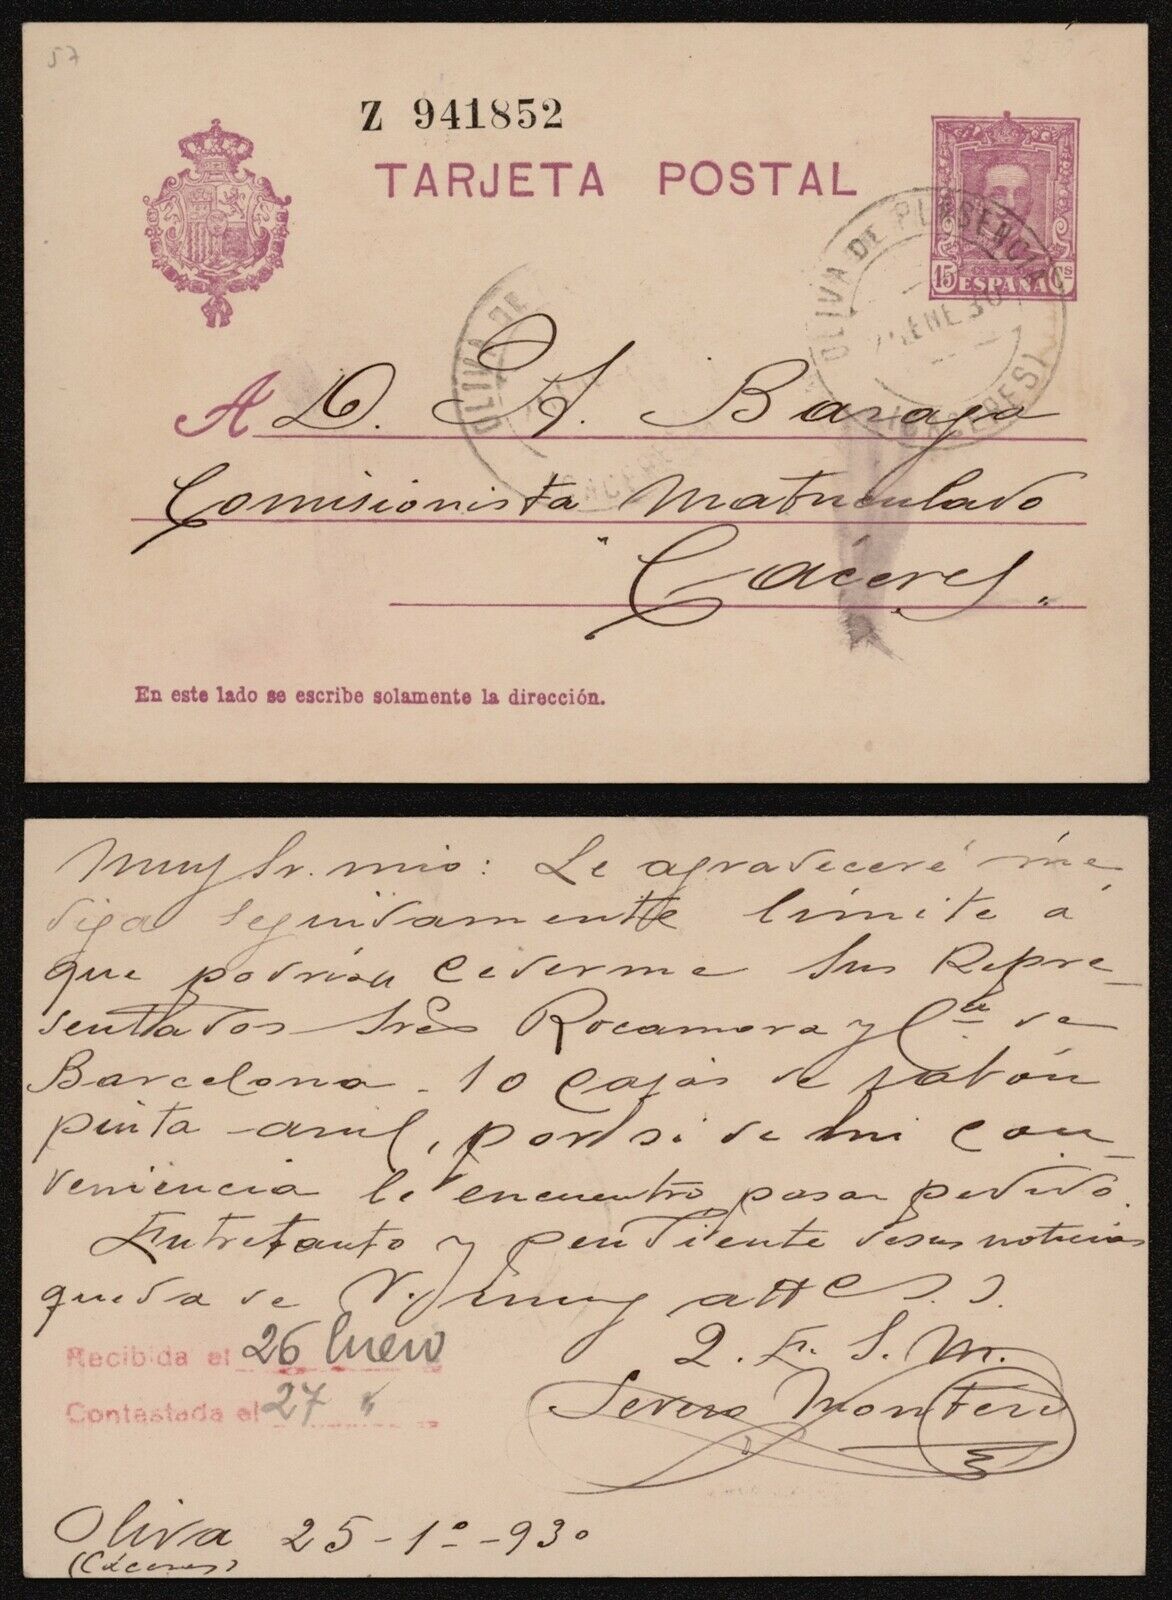 57
Z 941852
TARJETA POSTAL
15 Cs
ESPAÑA
OLIVA DE PLASENCIA
ENE 30
(CACERES)
OLIVA DE
A D. A. Baraja
Comisionista Matriculado
"Cáceres"
En este lado se escribe solamente la dirección.
Muy Sr. mio: Le agradeceré me
diga seguidamente limite á
que podría cederme sus Repre-
sentados Sres Rocamora y Cia de
Barcelona - 10 cajas de jabón
pinta-anil, por si de mi con-
veniencia le encuentro pasar pedido.
Entretanto y pendiente de sus noticias
queda de V. muy atto S. S.
Q. E. S. M.
Severo Montero
Recibida el 26 Enero
Contestada el 27 "
Oliva 25-1º-930
(Cáceres)